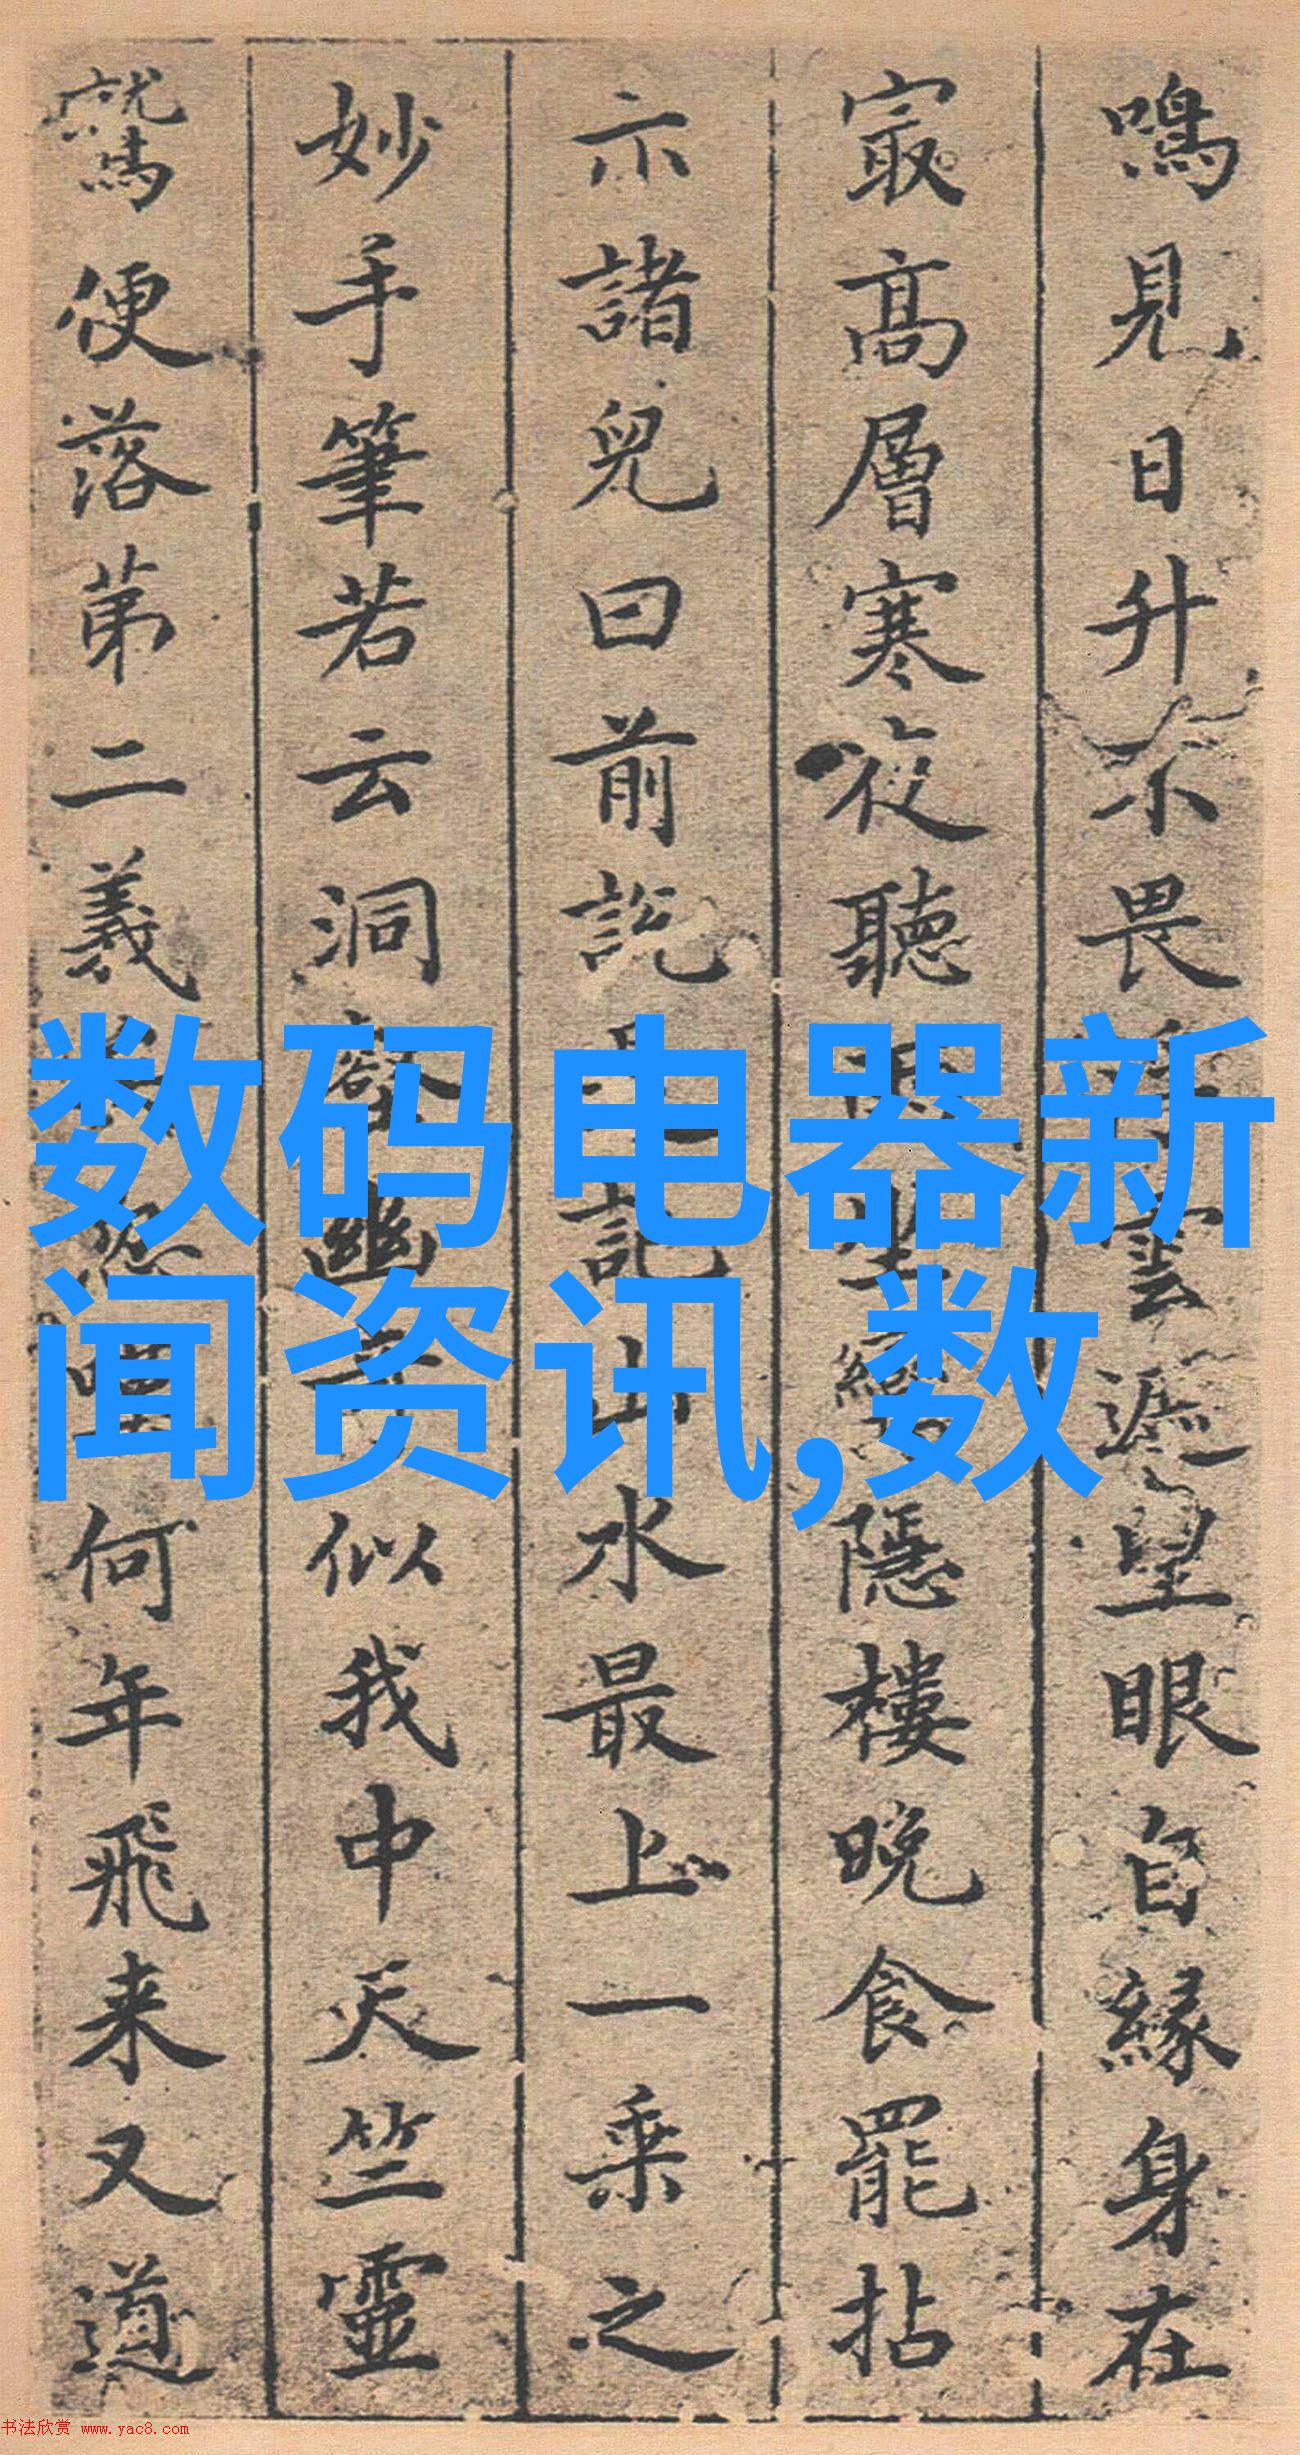 鳴見日升不畏雲遮望眼自緣身在
最高層寒夜聽雨隱樓晚食罷拈
示諸兒曰前説記山水最上一乘之
妙手筆若云洞幽似我中天竺靈
鷲便落第二義何年飛来又道
数码电器新
闻资讯,数
书法欣赏 www.yac8.com